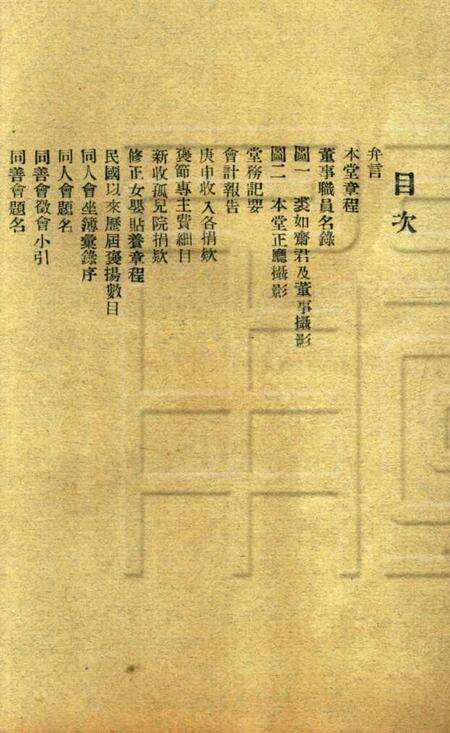 目次
弁言
本堂章程
董事職員名錄
圖一 裘如齋君及董事攝影
圖二 本堂正廳攝影
堂務記要
會計報告
庚申收入各捐欵
褒節專主費細目
新收孤兒院捐欵
修正女嬰貼養章程
民國以來歷屆褒揚數目
同人會坐簿彙錄序
同人會題名
同善會徵會小引
同善會題名